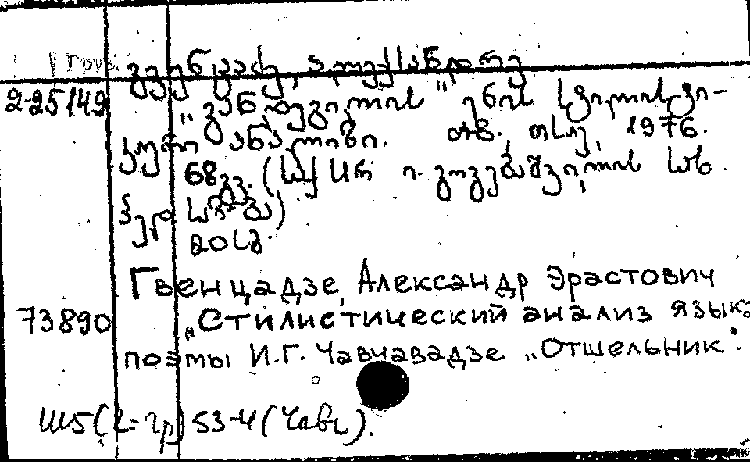 გვენცაძე, ალექსანდრე
2-25149 „განდეგილის“ ენის სტილისტი-
კური ანალიზი. თბ., თსუ, 1976.
68გვ. (საქ სსრ ი. გოგებაშვილის სახ.
20სმ
Гвенцадзе, Александр Эрастович
73890 „Стилистический анализ языка
поэмы И.Г. Чавчавадзе „Отшельник“.
Ш5(2=Гр)53-4(Чавч).